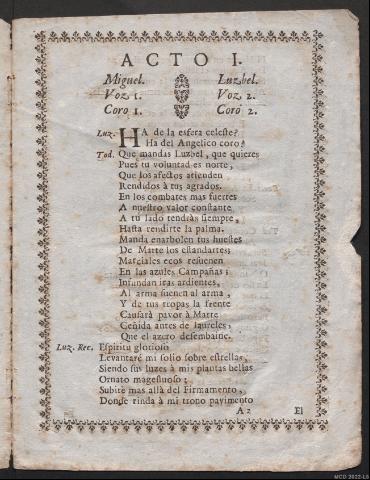 ACTO I.
Miguel. Luzbel.
Voz 1. Voz 2.
Coro 1. Coro 2.
Luz. HA de la esfera celeste?
Ha del Angelico coro?
Tod. Que mandas Luzbel, que quieres
Pues tu voluntad es norte,
Que los afectos atienden
Rendidos à tus agrados.
En los combates mas fuertes
A nuestro valor constante
A tu lado tendràs siempre,
Hasta rendirte la palma.
Manda enarbolen tus huestes
De Marte los estandartes;
Marciales ecos resuenen
En las azules Campañas;
Infundan iras ardientes,
Al arma suenen al arma,
Y de tus tropas la frente
Causarà pavor à Marte
Ceñida antes de laureles,
Que el azero desembaine.
Luz. Rec. Espiritu glorioso
Levantarè mi solio sobre estrellas,
Siendo sus luzes à mis plantas bellas
Ornato magestuoso;
Subirè mas allà del Firmamento,
Donde rinda à mi trono pavimento
A 2 El
MCD 2022-L5